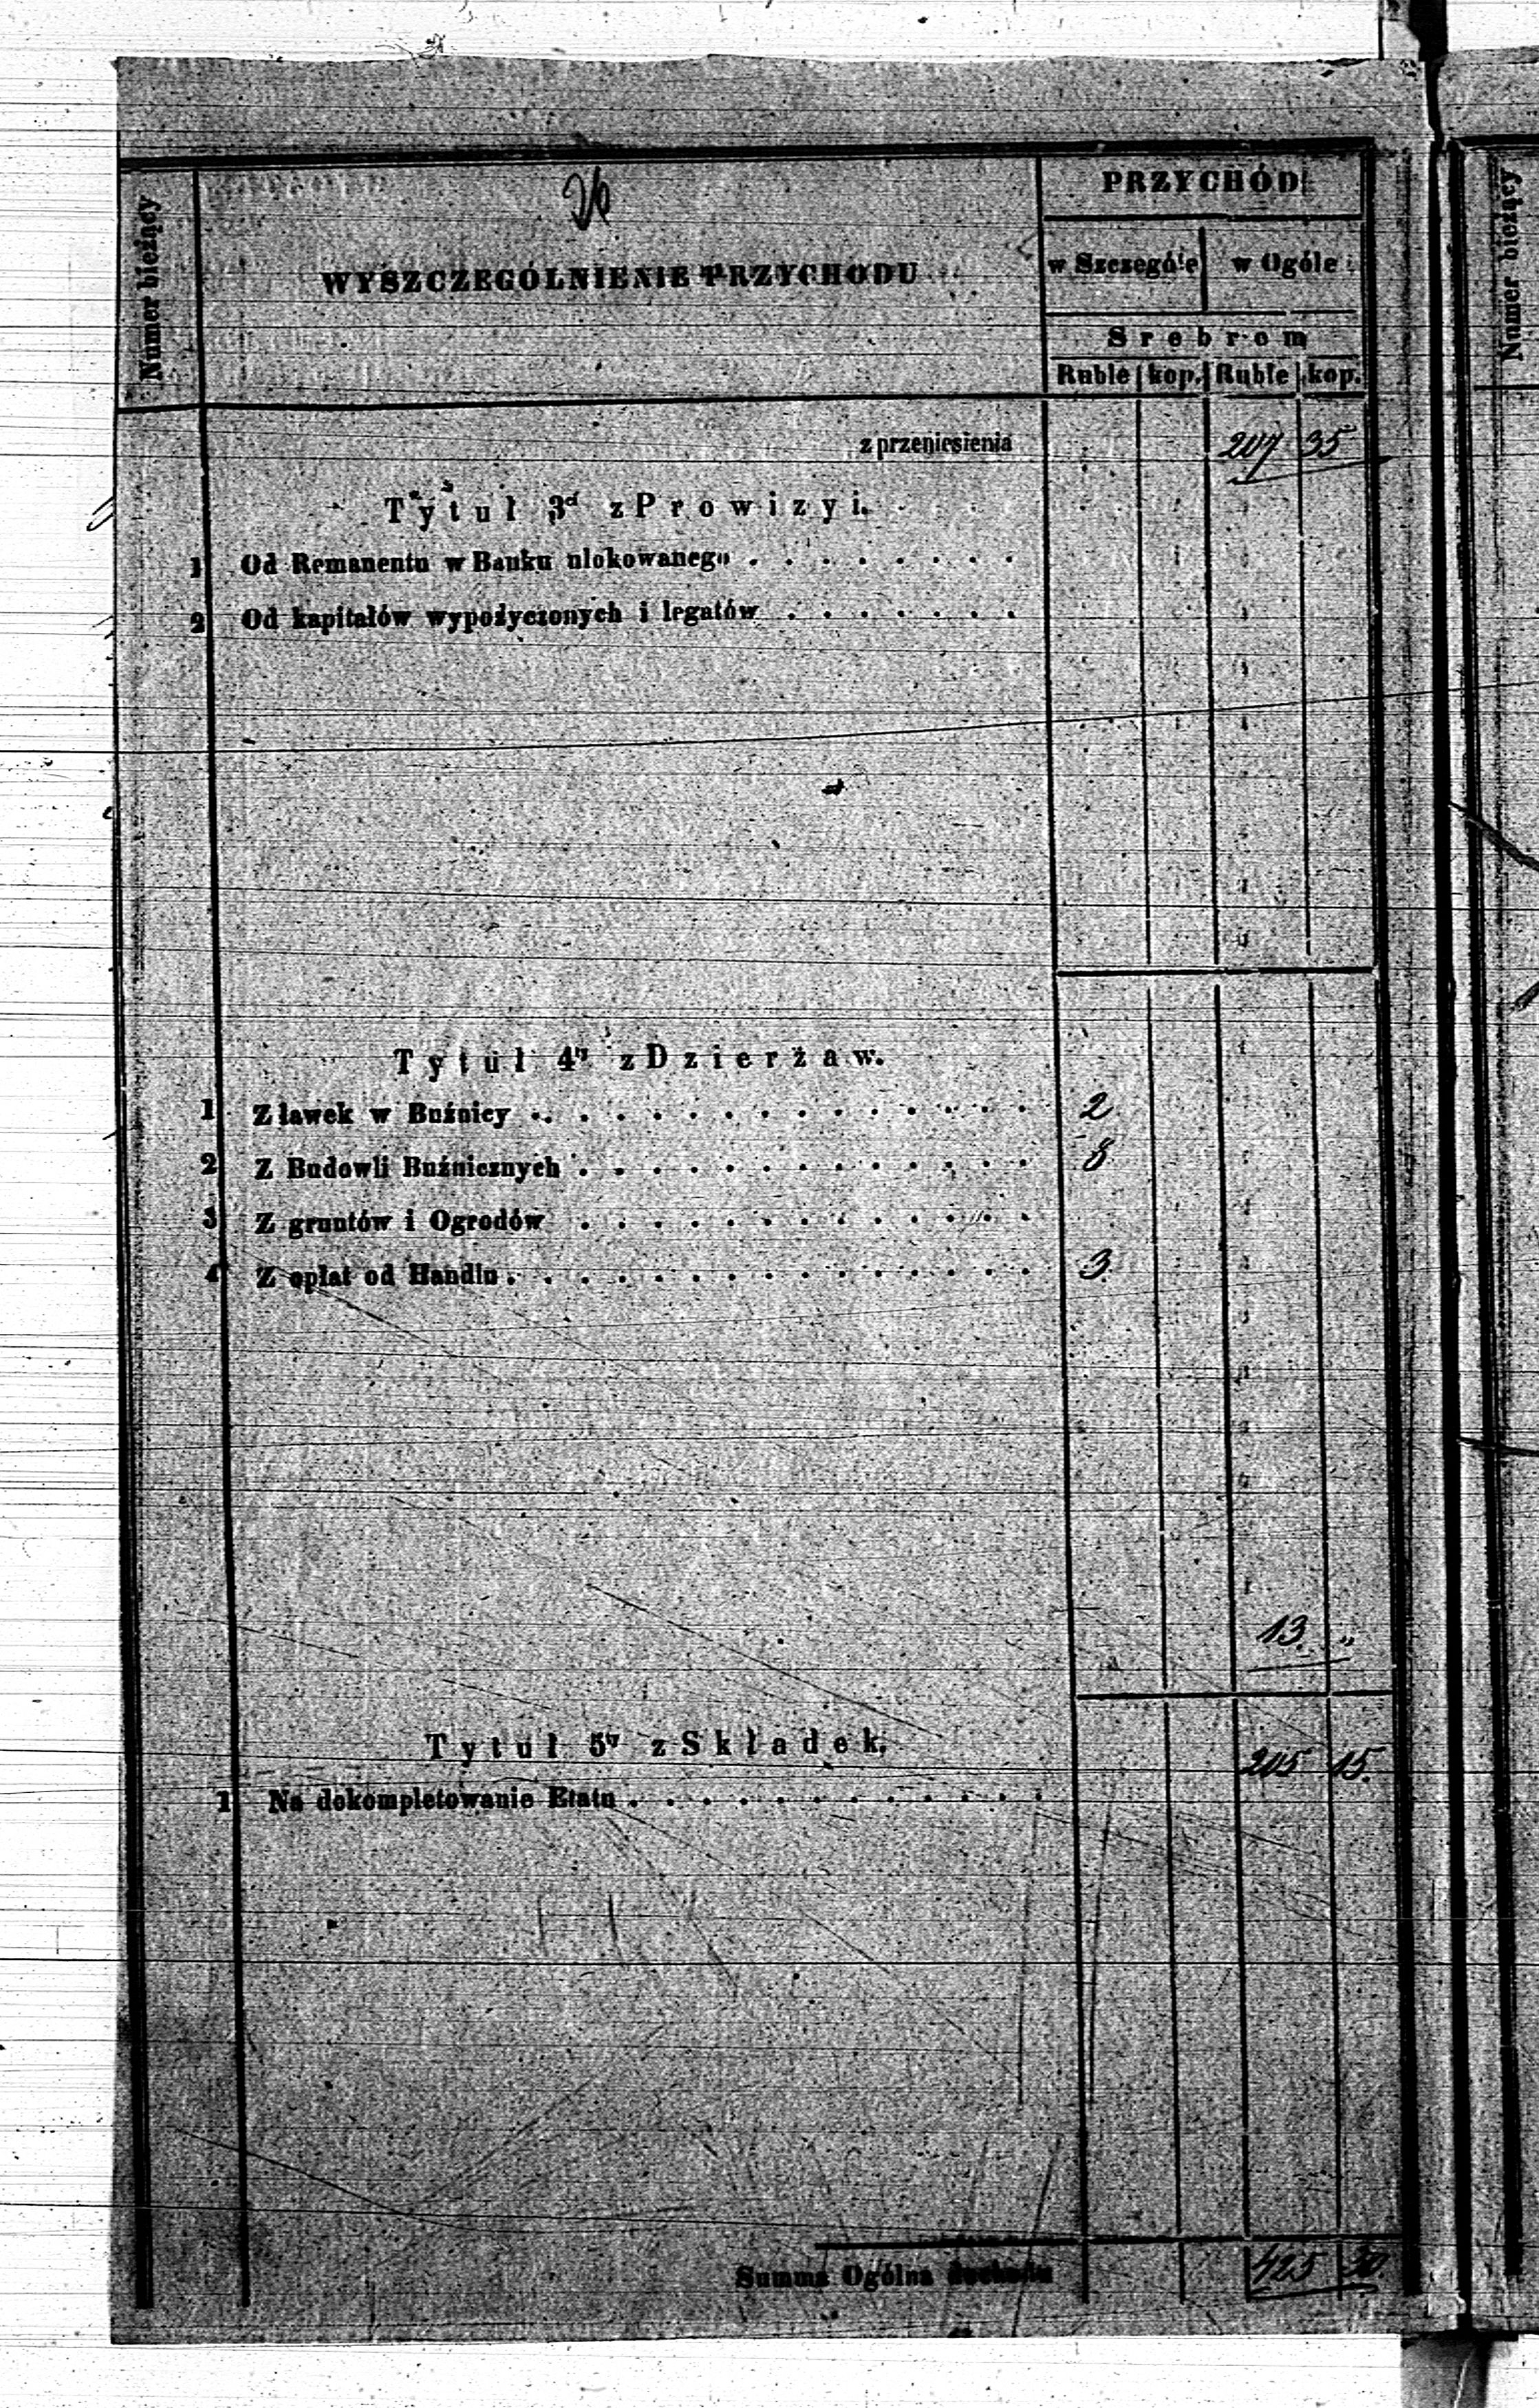 26
PRZYCHÓD
Numer bieżący
WYSZCZEGÓLNIENIE PRZYCHODU
w Szczególe w Ogóle
Srebrem
Ruble kop. Ruble kop.
z przeniesienia 207 35
Tytuł 3ci z Prowizyi.
1 Od Remanentu w Banku ulokowanego . . . . . . . .
2 Od kapitałów wypożyczonych i legatów . . . . . . .
Tytuł 4ty z Dzierżaw.
1 Z ławek w Buźnicy . . . . . . . . . . . . . . 2
2 Z Budowli Buźnicznych . . . . . . . . . . . . . 8
3 Z gruntów i Ogrodów . . . . . . . . . . . . .
4 Z opłat od Handlu . . . . . . . . . . . . . . . 3
13 "
Tytuł 5ty z Składek.
205 15.
1 Na dokompletowanie Etatu . . . . . . . . . . . .
Summa Ogólna dochodu 425 50.
Numer bieżący